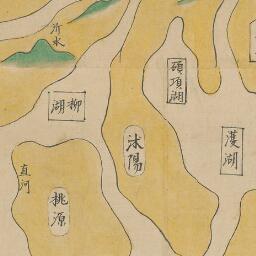 沂水
碩項湖
柳湖
沭陽
直河
桃源